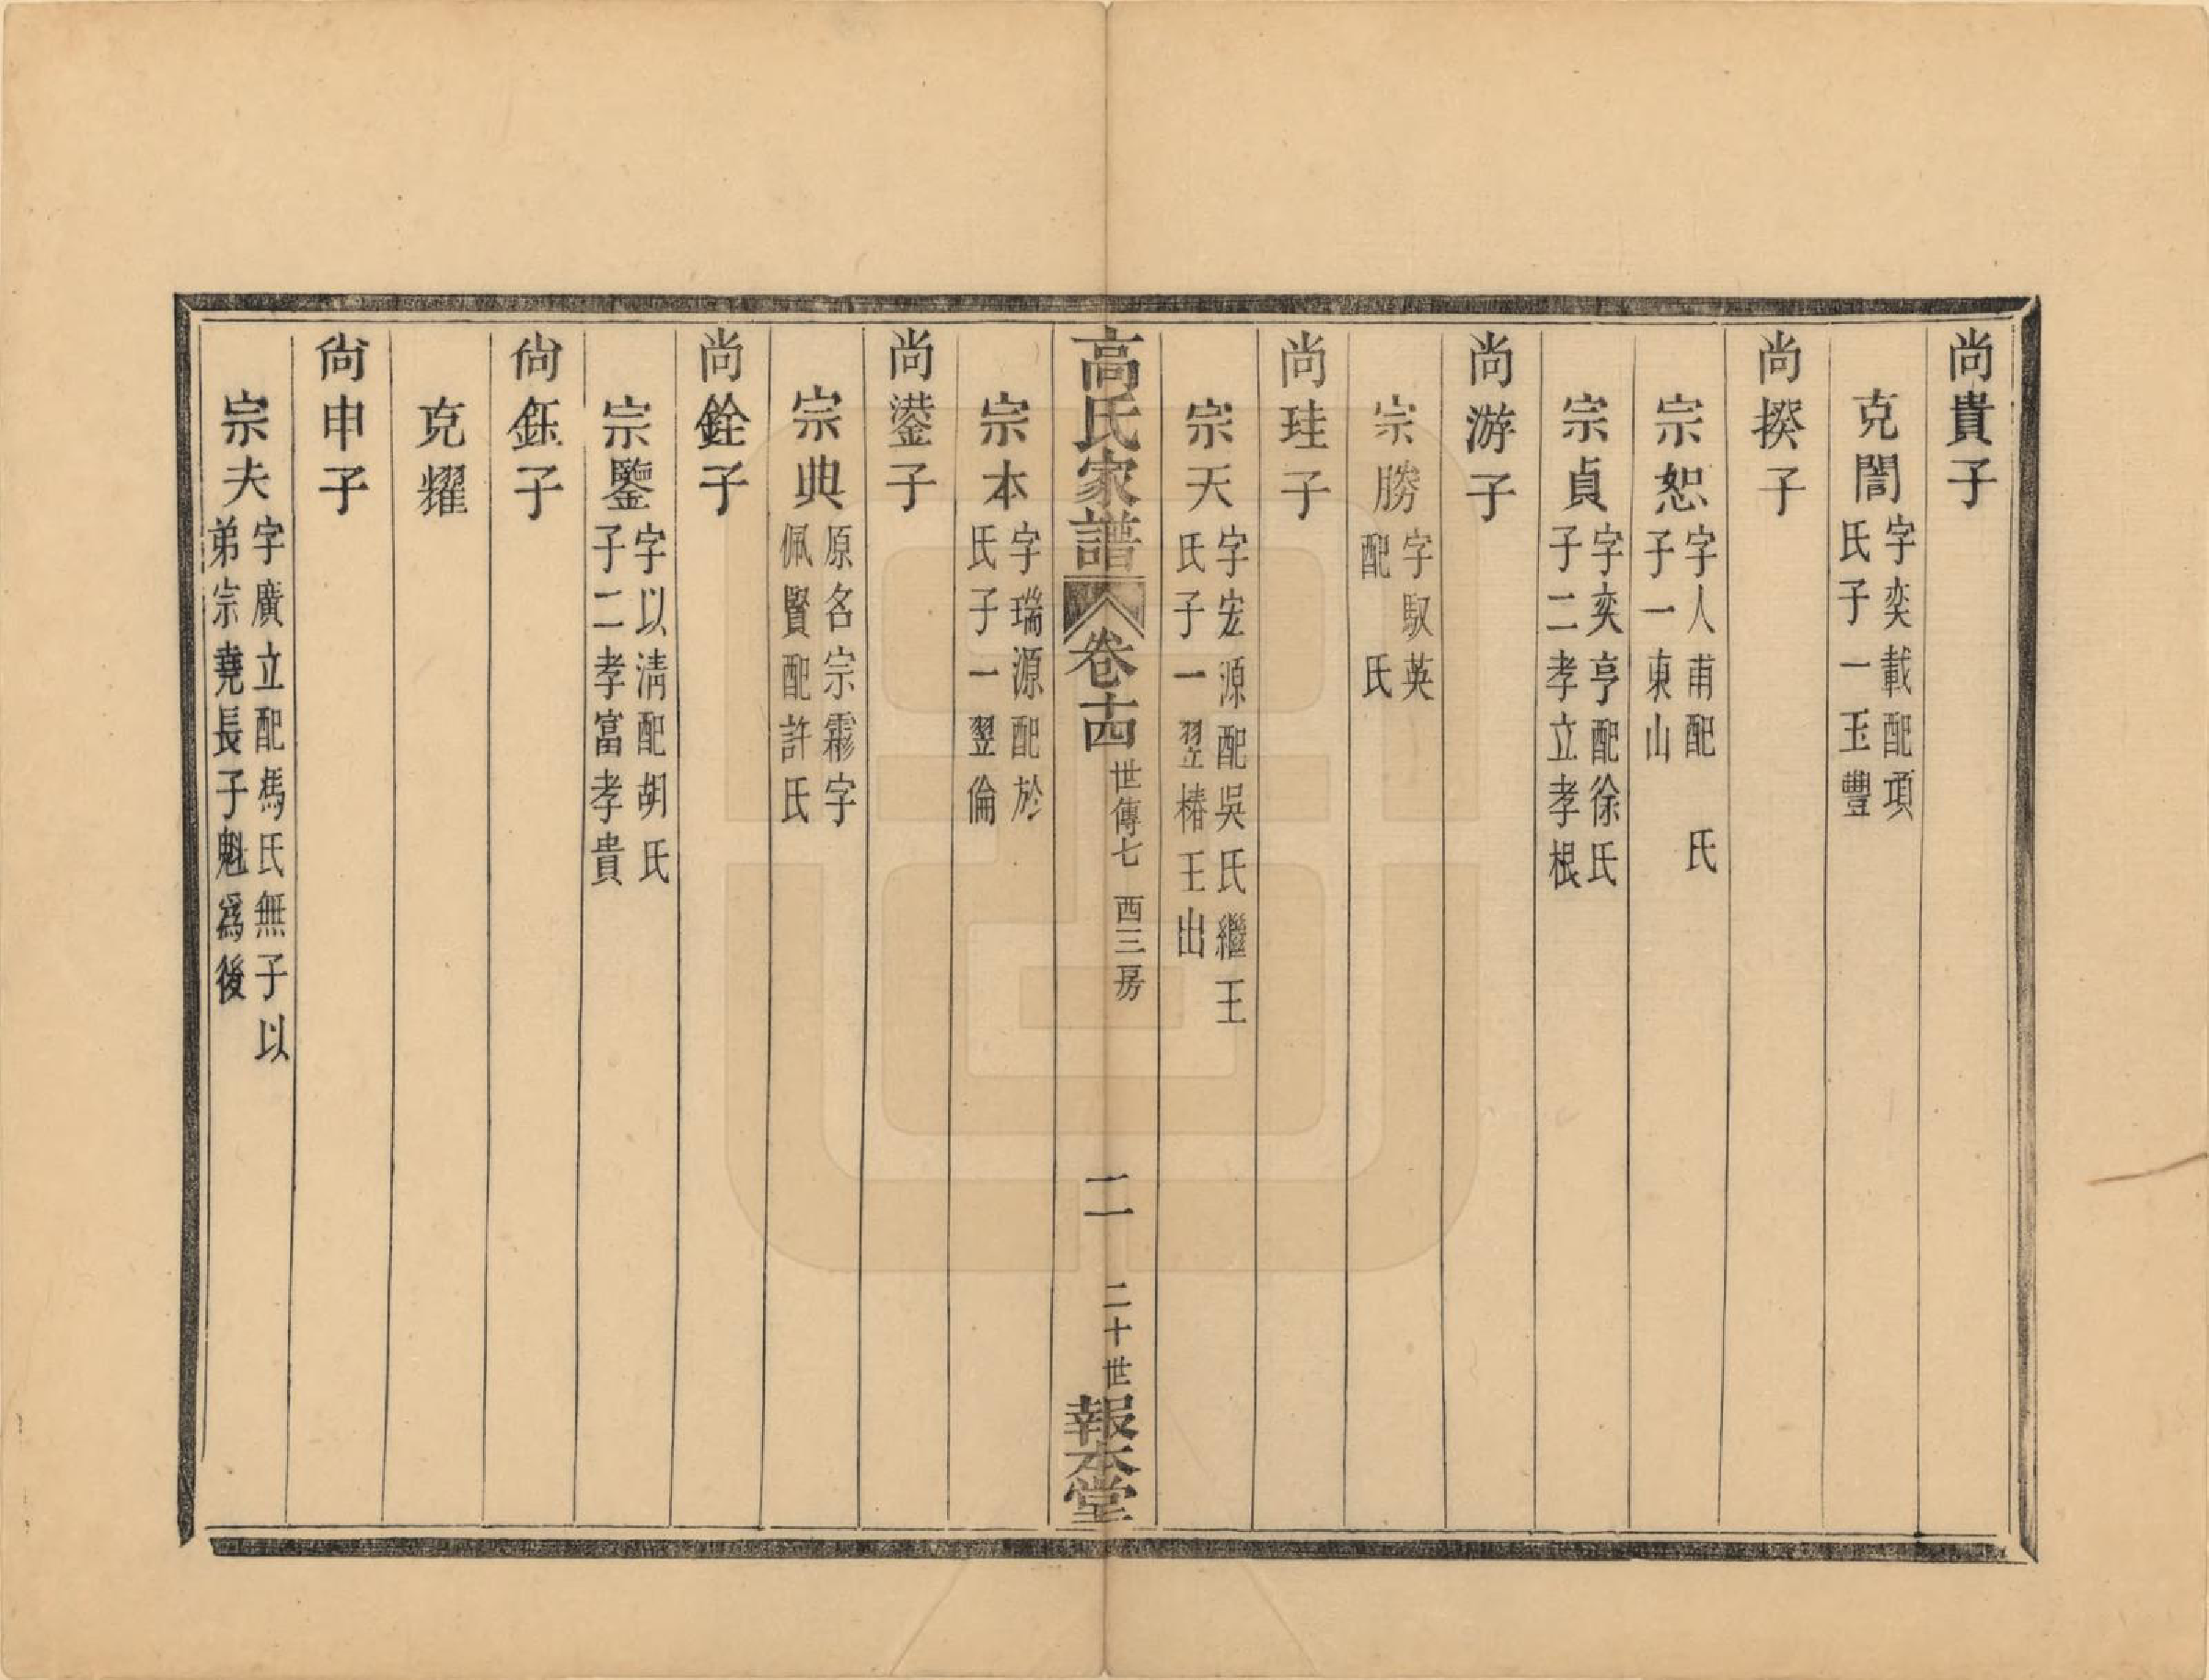 尚貴子
克誾
字奕載配項
氏子一玉豐
尚揆子
宗恕
字人甫配　氏
子一東山
宗貞
字奕亨配徐氏
子二孝立孝根
尚游子
宗勝
字馭英
配　氏
尚珪子
宗天
字宏源配吳氏繼王
氏子一翌椿王出
高氏家譜
卷十四
世傳七　西三房
二
二十世
報本堂
宗本
字瑞源配於
氏子一翌倫
尚鎏子
宗典
原名宗霦字
佩賢配許氏
尚銓子
宗鑒
字以清配胡氏
子二孝富孝貴
尚鈺子
克耀
尚申子
宗夫
字廣立配馬氏無子以
弟宗堯長子魁爲後